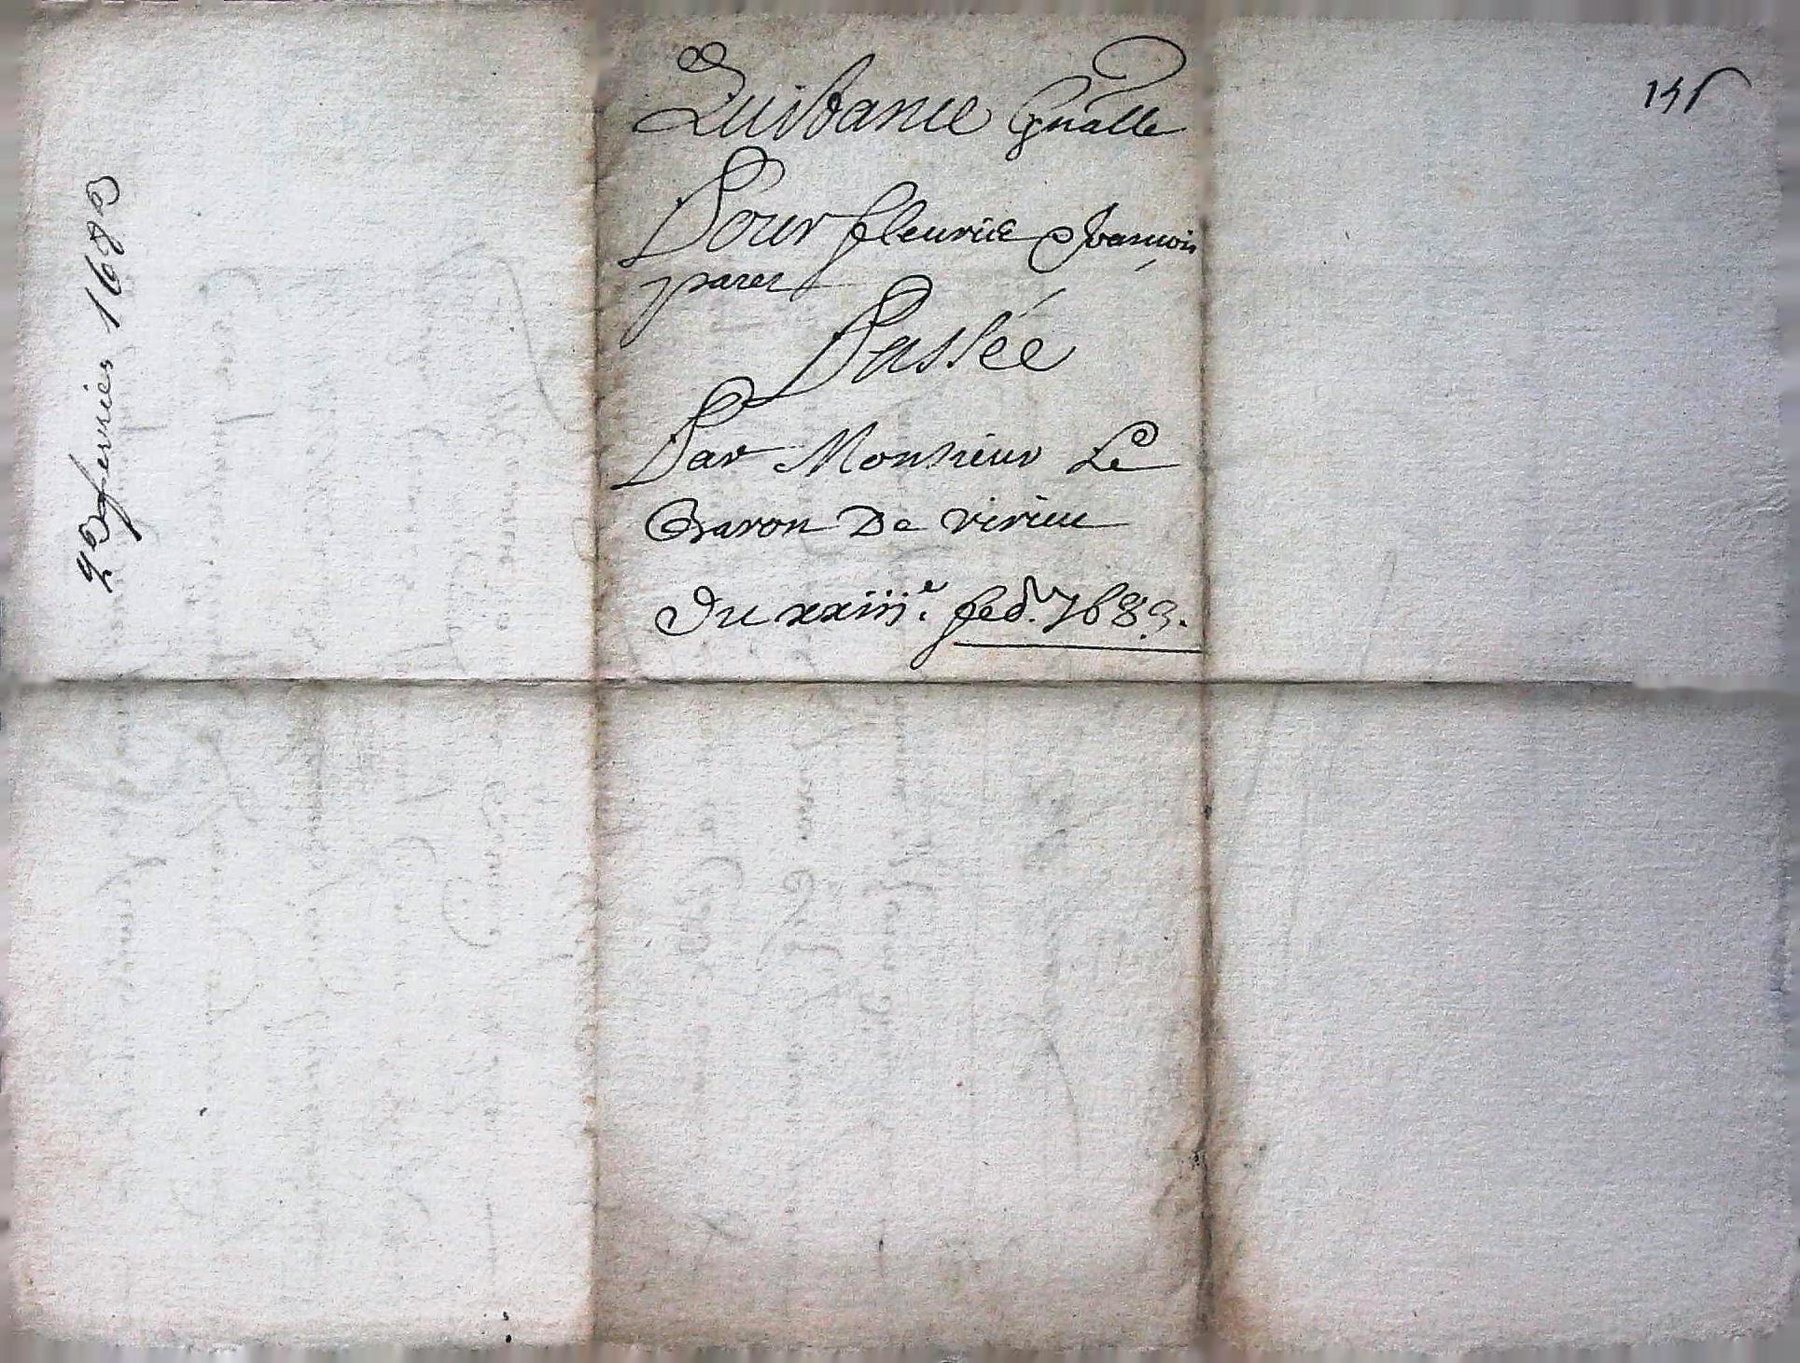 Quittance gnalle
Pour fleurie
Passée
Par Monsieur Le
Baron De virieu
Du xxiii.e feb. 1683.
23 fevrier 1683